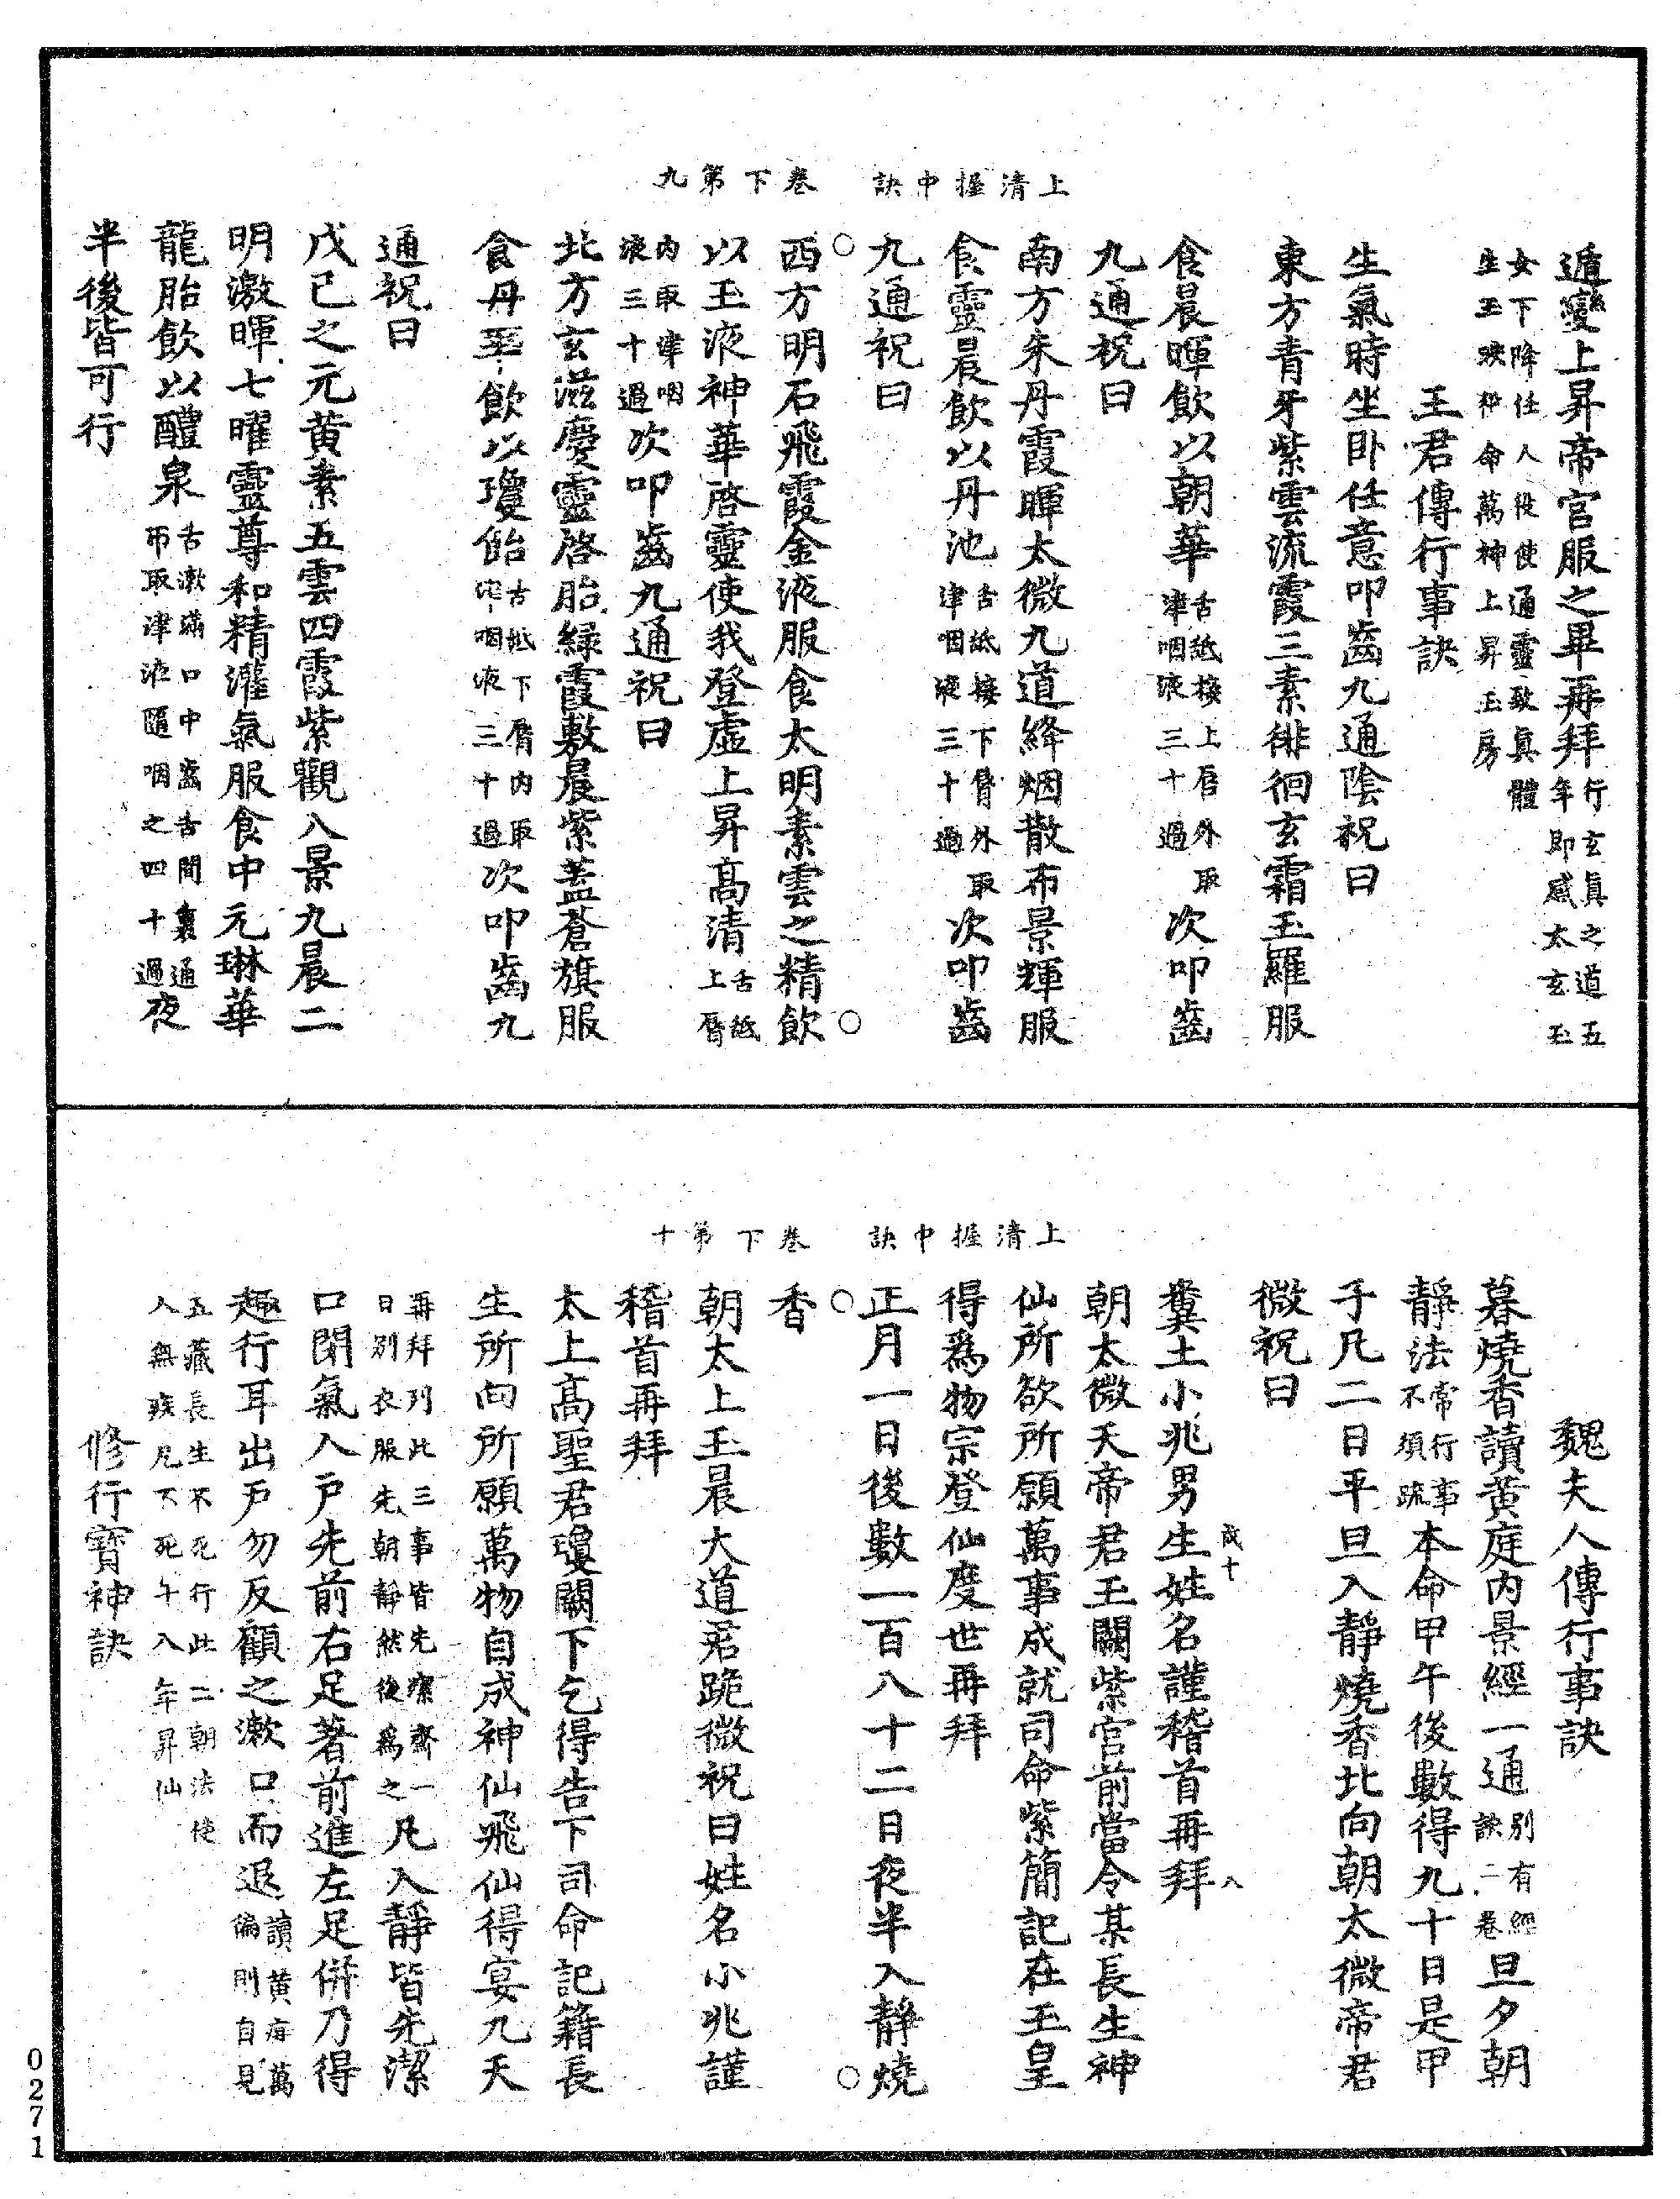 上清握中訣　卷下第九
遁變上昇帝宮服之畢再拜行玄真之道五年即感太玄玉
女下降任人役使通靈致真體生玉映神命萬神上昇玉房
王君傳行事訣
生氣時坐卧任意叩齒九通陰祝曰
東方青牙紫雲流霞三素徘徊玄霜玉羅服
食晨暉飲以朝華舌舐接上脣外取津咽液三十過次叩齒
九通祝曰
南方朱丹霞暉太微九道絳烟散布景輝服
食靈晨飲以丹池舌舐接下脣外取津咽液三十過次叩齒
九通祝曰
西方明石飛霞金液服食太明素雲之精飲
以玉液神華啓靈使我登虛上昇高清舌舐上脣
內取津咽液三十過次叩齒九通祝曰
北方玄滋慶靈啓胎緑霞敷晨紫蓋蒼旗服
食丹𦍤飲以瓊飴舌舐下脣內取津咽液三十過次叩齒九
通祝曰
戊己之元黃素五雲四霞紫觀八景九晨二
明激暉七曜靈尊和精灌氣服食中元琳華
龍胎飲以醴泉舌漱滿口中齒舌間裏通帀取津液隨咽之四十過夜
半後皆可行
上清握中訣　卷下第十
魏夫人傳行事訣
暮燒香讀黃庭內景經一通別有經訣二卷旦夕朝
靜法常行事不須疏本命甲午後數得九十日是甲
子凡二日平旦入靜燒香北向朝太微帝君
微祝曰
糞土小兆男生姓名謹稽首再拜
朝太微天帝君玉闕紫宮前當令某長生神
仙所欲所願萬事成就司命紫簡記在玉皇
得為物宗登仙度世再拜
正月一日後數一百八十二日夜半入靜燒
香
朝太上玉晨大道君跪微祝曰姓名小兆謹
稽首再拜
太上高聖君瓊闕下乞得告下司命記籍長
生所向所願萬物自成神仙飛仙得宴九天
再拜列此三事皆先潔齋一日別衣服先朝靜然後為之凡入靜皆先潔
口閉氣入戶先前右足著前進左足併乃得
趣行耳出戶勿反顧之漱口而退讀黃庭萬徧則自見
五藏長生不死行此二朝法使人無疾凡不死午入年昇仙
修行寶神訣
成十
八
0271